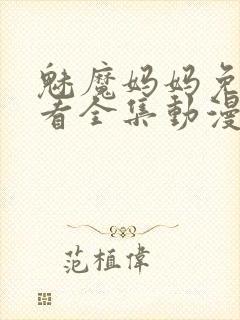 魅魔妈妈免
看全集動漫
范植偉